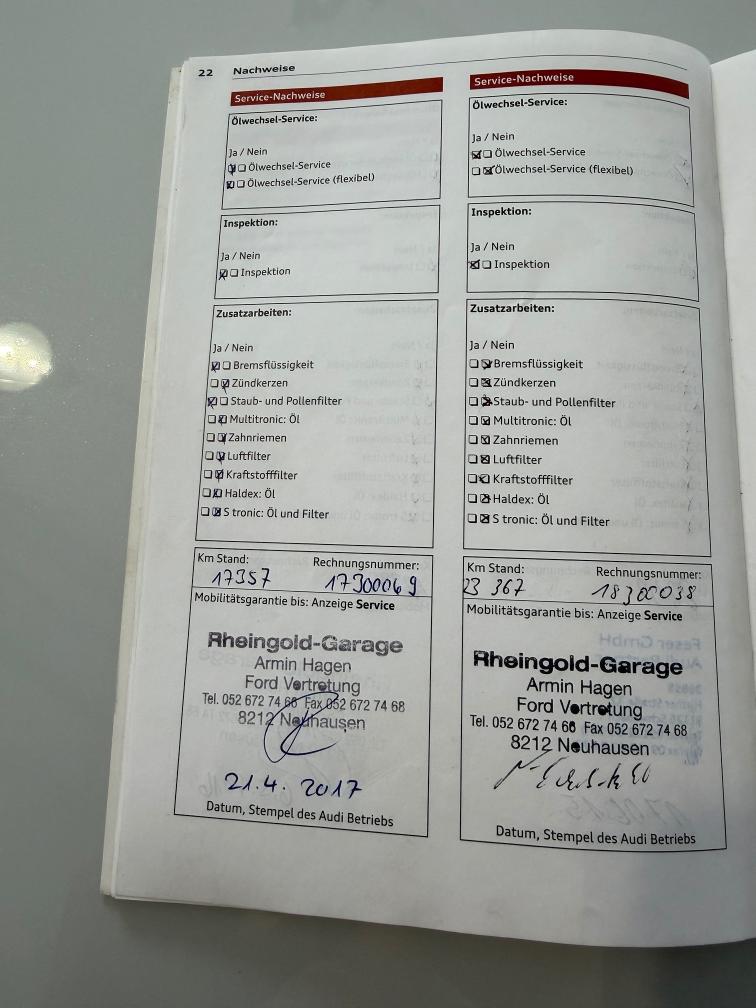 22 Nachweise
Service-Nachweise
Ölwechsel-Service:
Ja / Nein
Ölwechsel-Service
Ölwechsel-Service (flexibel)
Inspektion:
Ja / Nein
Inspektion
Zusatzarbeiten:
Ja / Nein
Bremsflüssigkeit
Zündkerzen
Staub- und Pollenfilter
Multitronic: Öl
Zahnriemen
Luftfilter
Kraftstofffilter
Haldex: Öl
S tronic: Öl und Filter
Km Stand: Rechnungsnummer:
17357 17300069
Mobilitätsgarantie bis: Anzeige Service
Rheingold-Garage
Armin Hagen
Ford Vertretung
Tel. 052 672 74 68 Fax 052 672 74 68
8212 Neuhausen
21.4. 2017
Datum, Stempel des Audi Betriebs
Service-Nachweise
Ölwechsel-Service:
Ja / Nein
Ölwechsel-Service
Ölwechsel-Service (flexibel)
Inspektion:
Ja / Nein
Inspektion
Zusatzarbeiten:
Ja / Nein
Bremsflüssigkeit
Zündkerzen
Staub- und Pollenfilter
Multitronic: Öl
Zahnriemen
Luftfilter
Kraftstofffilter
Haldex: Öl
S tronic: Öl und Filter
Km Stand: Rechnungsnummer:
23 367 18300038
Mobilitätsgarantie bis: Anzeige Service
Rheingold-Garage
Armin Hagen
Ford Vertretung
Tel. 052 672 74 66 Fax 052 672 74 68
8212 Neuhausen
Datum, Stempel des Audi Betriebs